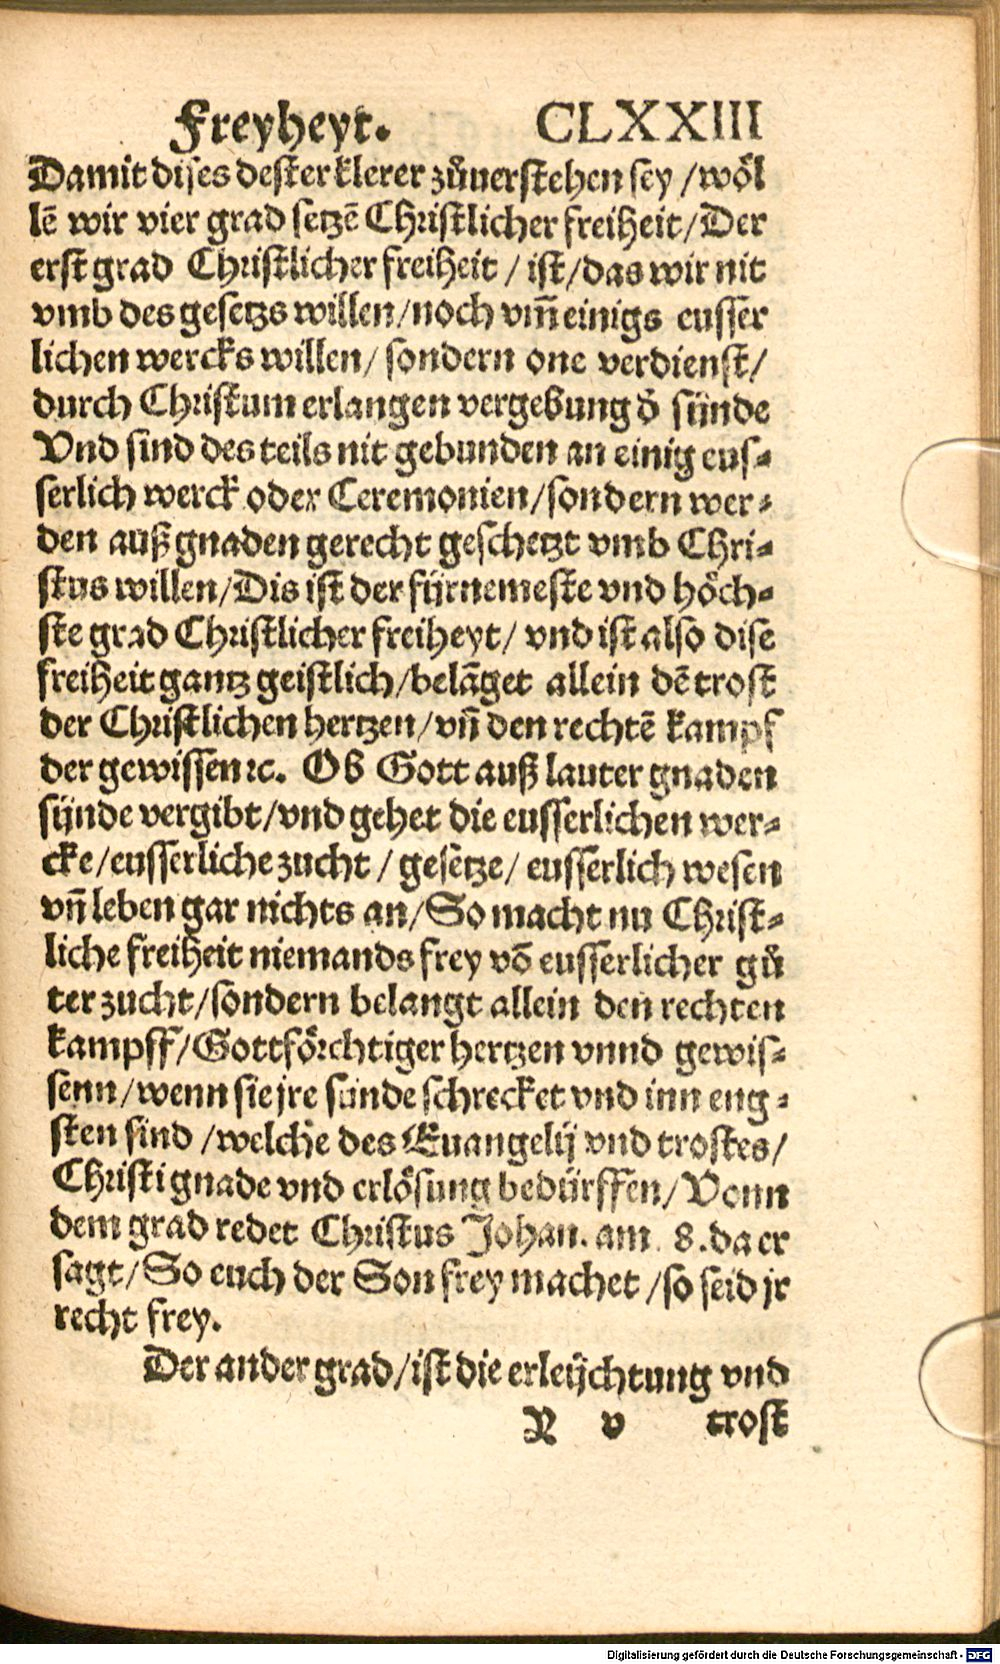 Freyheyt. CLXXIII
Damit dises dester klerer zůuerstehen sey /wöl
lẽ wir vier grad setzẽ Christlicher freiheit/Der
erst grad Christlicher freiheit / ist/das wir nit
vmb des gesetzs willen/noch vm̃ einigs eusser
lichen wercks willen/ sondern one verdienst/
durch Christum erlangen vergebung d̕ sünde
Vnd sind des teils nit gebunden an einig eus-
serlich werck oder Ceremonien/sondern wer-
den auß gnaden gerecht geschetzt vmb Chri-
stus willen/Dis ist der fürnemeste vnd höch-
ste grad Christlicher freiheyt/ vnd ist also dise
freiheit gantz geistlich/belãget allein dẽ trost
der Christlichen hertzen/vñ den rechtẽ kampf
der gewissen ꝛc. Ob Gott auß lauter gnaden
sünde vergibt/vnd gehet die eusserlichen wer-
cke/eusserliche zucht / gesetze/ eusserlich wesen
vñ leben gar nichts an/So macht nu Christ-
liche freiheit niemands frey võ eusserlicher gů
ter zucht/sondern belangt allein den rechten
kampff/Gottförchtiger hertzen vnnd gewis-
senn/wenn sie jre sünde schrecket vnd inn eng-
sten sind /welche des Euangelij vnd trostes/
Christi gnade vnd erlösung bedürffen/Vonn
dem grad redet Christus Johan. am 8. da er
sagt/So euch der Son frey machet /so seid jr
recht frey.
Der ander grad/ist die erleüchtung vnd
Y v trost
Digitalisierung gefördert durch die Deutsche Forschungsgemeinschaft - DFG